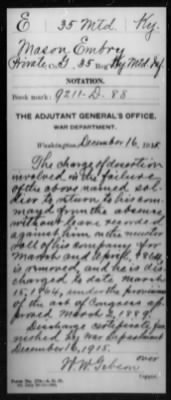 E 35 Mtd. Ky.
Mason Embry
Private, Co. G, 35 Reg't Ky Mtd. Inf.
NOTATION.
Book mark: 9211-D-88
THE ADJUTANT GENERAL'S OFFICE,
WAR DEPARTMENT,
Washington, December 16, 1915.
The charge of desertion
involved in the failure
of the above named sol-
dier to return to his com-
mand from the absence
without leave recorded
against him on the muster
roll of his company for
March and April, 1864,
is removed, and he is dis-
charged to date March
1864, under the provisions
of the act of Congress ap-
proved March 2, 1889.
Discharge certificate fur-
nished by War Department
December 16, 1915.
over
Copyist.